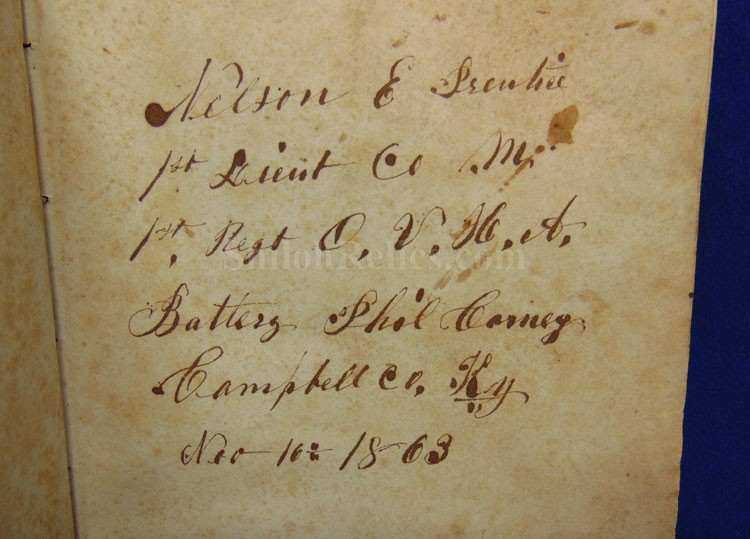 Nelson E Prentice
1st Lieut Co M.
1st, Regt O. V. H. A.
ShilohRelics.com
Battery Phil Carney
Campbell Co, Ky
Nov 16th 1863